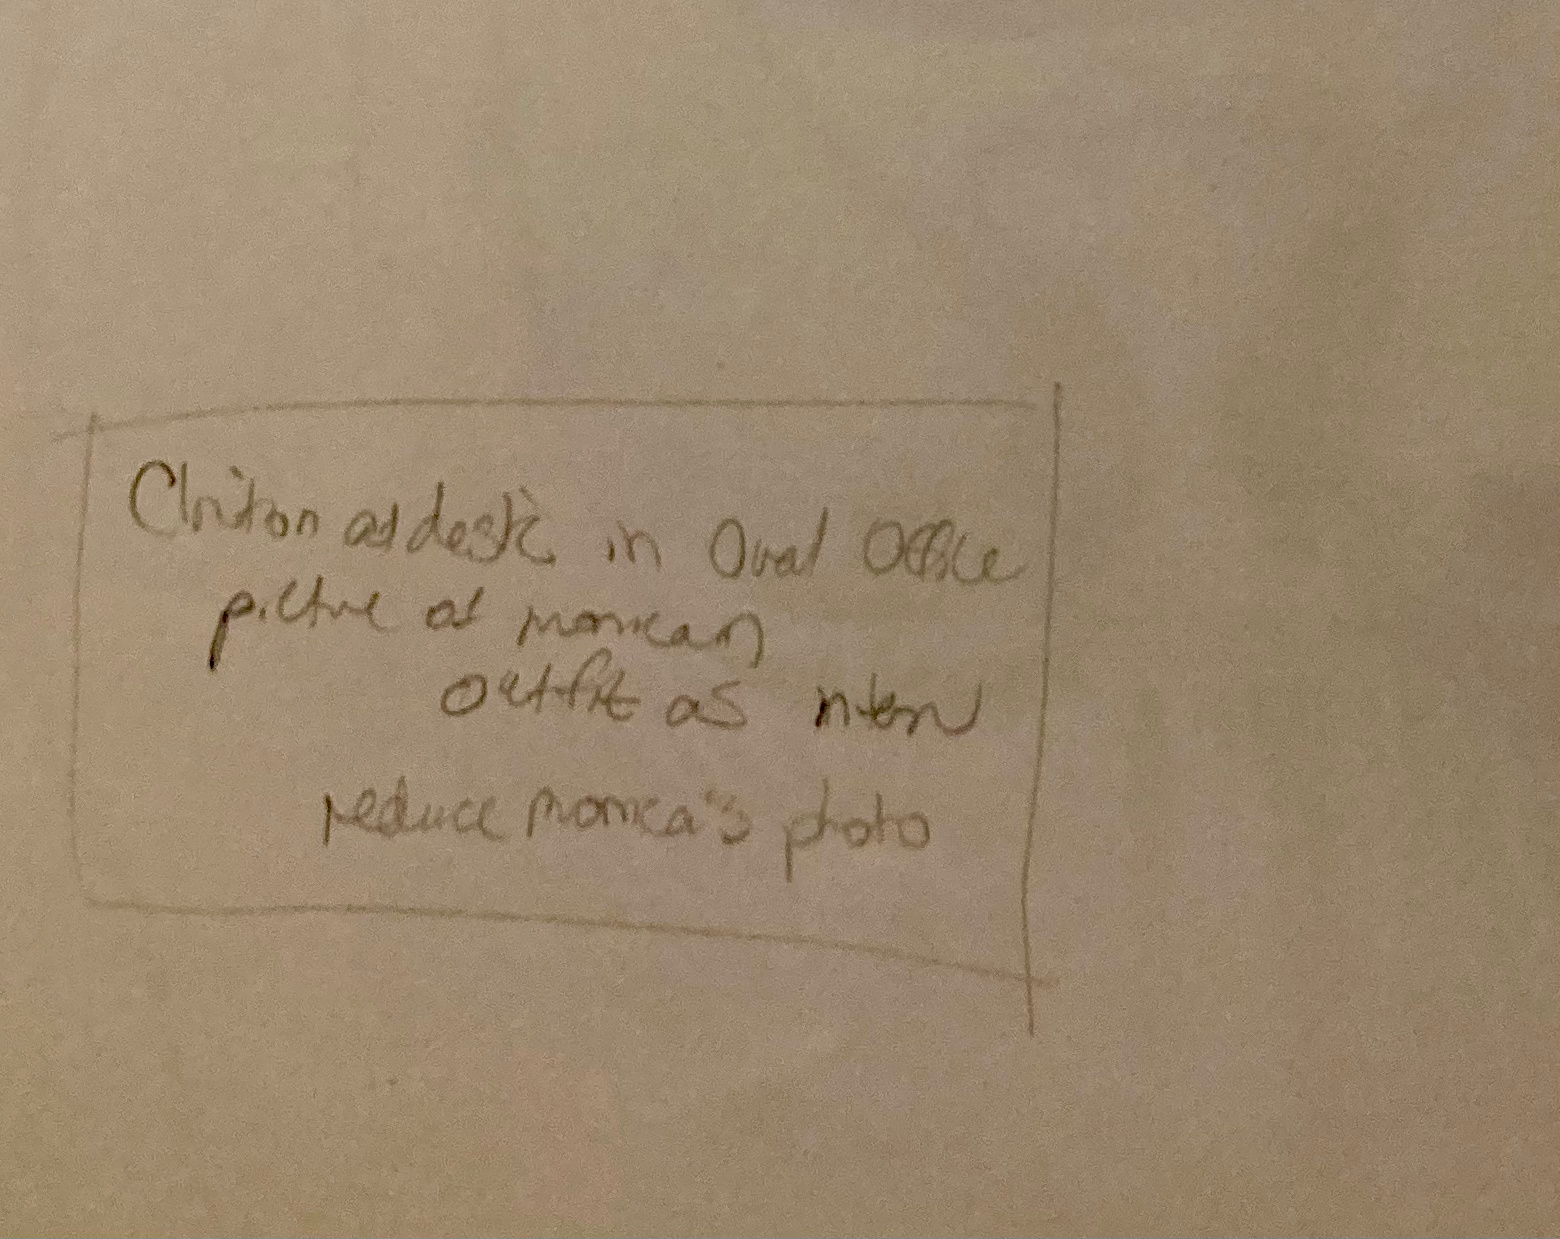 Clinton at desk in Oval Office
picture of monica in
outfit as intern
reduce monica's photo